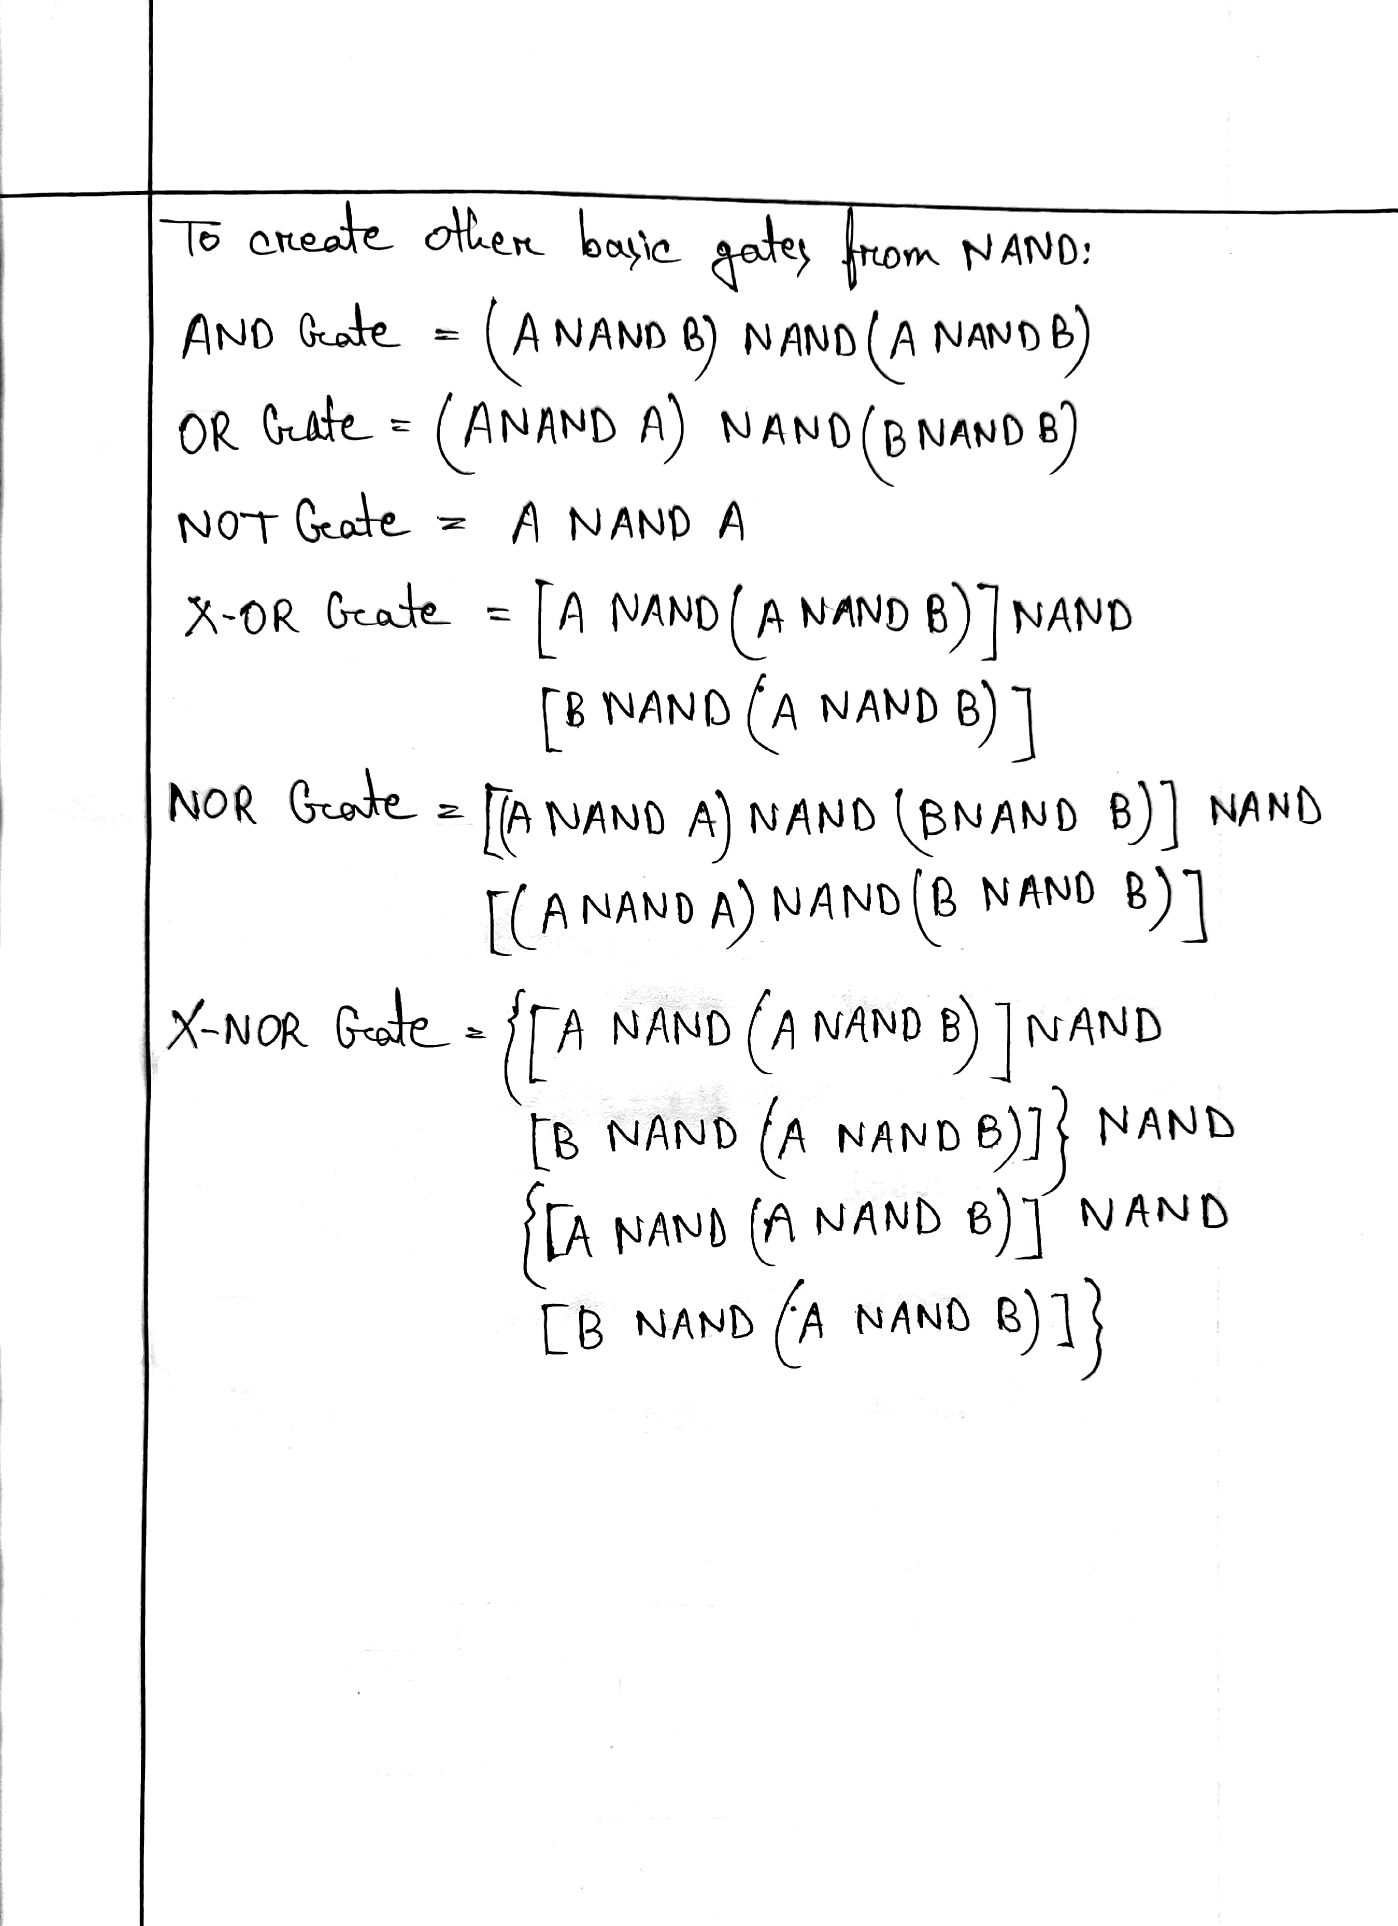 To create other basic gates from NAND:
AND Gate = (A NAND B) NAND (A NAND B)
OR Gate = (A NAND A) NAND (B NAND B)
NOT Gate = A NAND A
X-OR Gate = [A NAND (A NAND B)] NAND
[B NAND (A NAND B)]
NOR Gate = [(A NAND A) NAND (B NAND B)] NAND
[(A NAND A) NAND (B NAND B)]
X-NOR Gate = {[A NAND (A NAND B)] NAND
[B NAND (A NAND B)]} NAND
{[A NAND (A NAND B)] NAND
[B NAND (A NAND B)]}